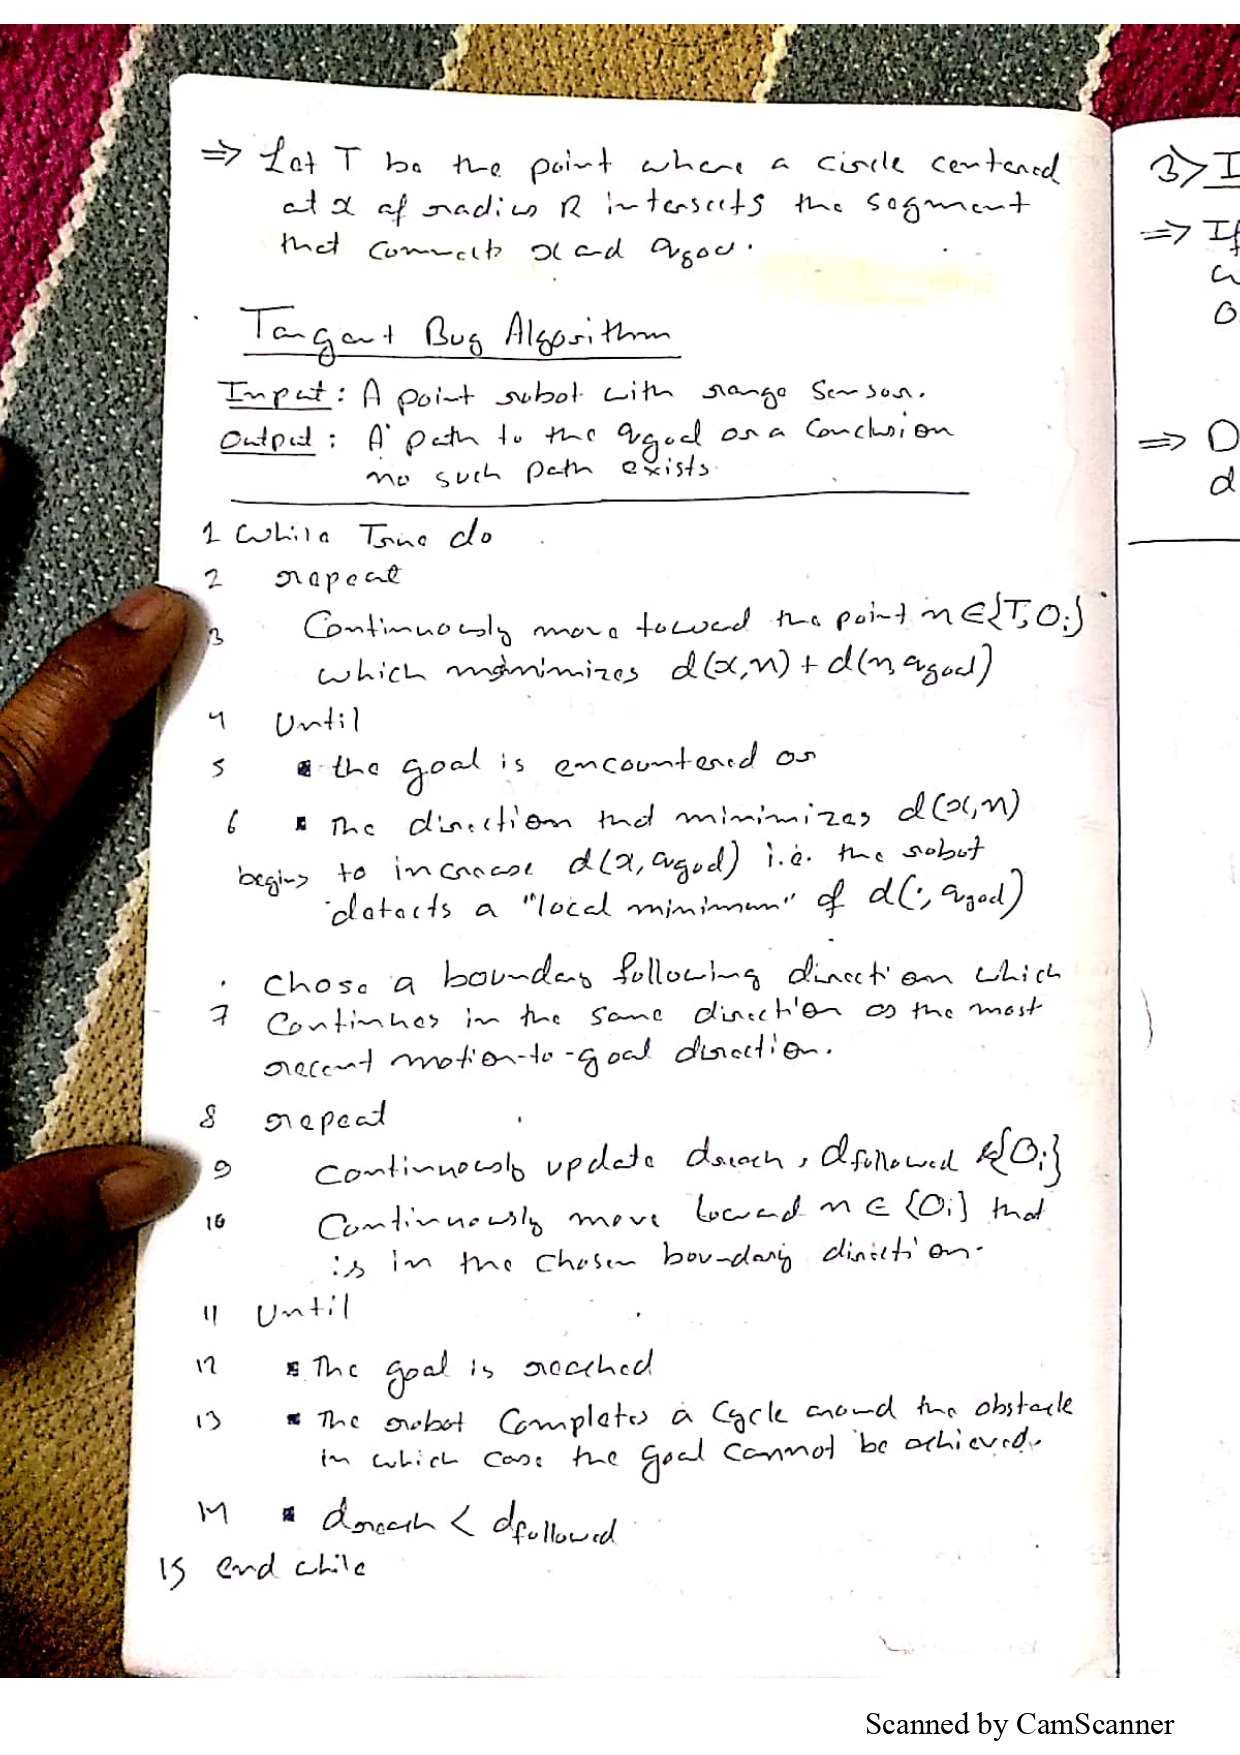 ⇒ Let T be the point where a circle centered
at x of radius R intersects the segment
that connects x and qgoal.
Tangent Bug Algorithm
Input: A point robot with range sensor.
Output: A path to the qgoal or a conclusion
no such path exists.
1 while True do
2 repeat
3 Continuously move toward the point n ∈ {T, Oi}
which minimizes d(x,n) + d(n, qgoal)
4 Until
5 ▪ the goal is encountered or
6 ▪ The direction that minimizes d(x,n)
begins to increase d(x, qgoal) i.e. the robot
detects a "local minimum" of d(·, qgoal)
chose a boundary following direction which
7 Continues in the same direction as the most
recent motion-to-goal direction.
8 repeat
9 continuously update dreach, dfollowed & {Oi}
10 Continuously move toward n ∈ {Oi} that
is in the chosen boundary direction.
11 Until
12 ▪ The goal is reached
13 ▪ The robot Completes a cycle around the obstacle
in which case the goal cannot be achieved.
14 ▪ dreach < dfollowed
15 end while
3> I
⇒ If
w
O
⇒ D
d
Scanned by CamScanner